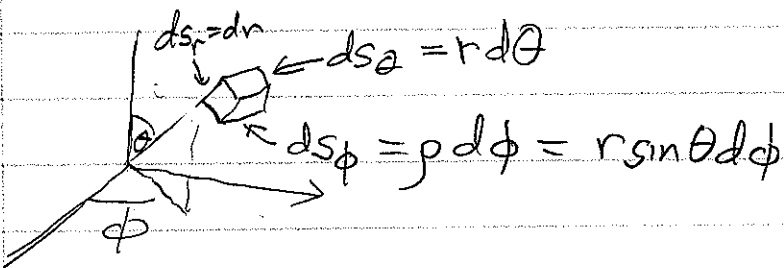 ds_r = dr
ds_θ = r dθ
ds_ϕ = ρ dϕ = r sin θ dϕ
θ
ϕ